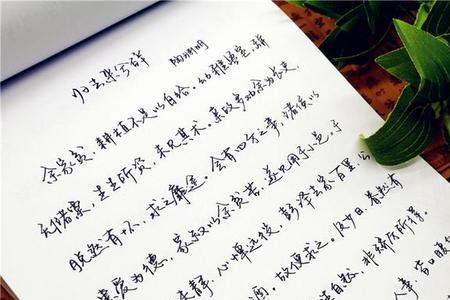 归去来兮辞 陶渊明
余家贫，耕植不足以自给。幼稚盈室，瓶
无储粟，生生所资，未见其术。亲故多劝余为长吏，
脱然有怀，求之靡途。会有四方之事，诸侯以
惠爱为德，家叔以余贫苦，遂见用于小邑。于
未静，心惮远役，彭泽去家百里，公
酒。故便求之。及少日，眷然有
自然，非矫厉所得。
人事，皆口腹